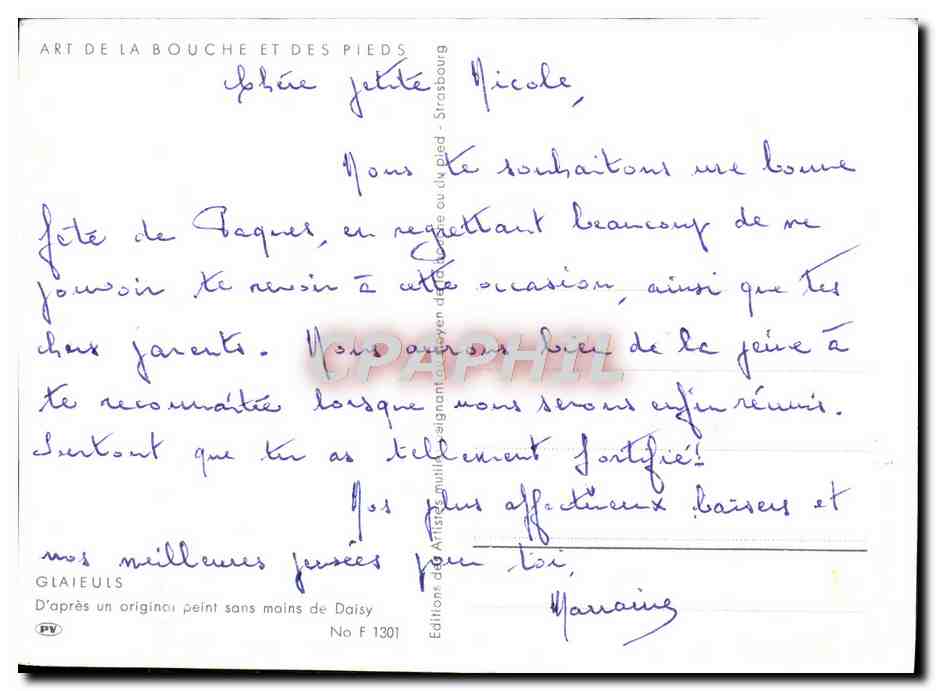 ART DE LA BOUCHE ET DES PIEDS
Chère petite Nicole,
Nous te souhaitons une bonne
fête de Paques, en regrettant beaucoup de ne
pouvoir te revoir à cette occasion, ainsi que tes
chers parents. Nous aurons bien de la peine à
te reconnaître lorsque nous serons enfin réunis.
Surtout que tu as tellement fortifié!
Nos plus affectueux baisers et
nos meilleures pensées pour toi,
Marraine
GLAIEULS
D'après un original peint sans mains de Daisy
PV
No F 1301
Editions des Artistes mutilés peignant au moyen de la bouche ou du pied - Strasbourg
CPAPHIL